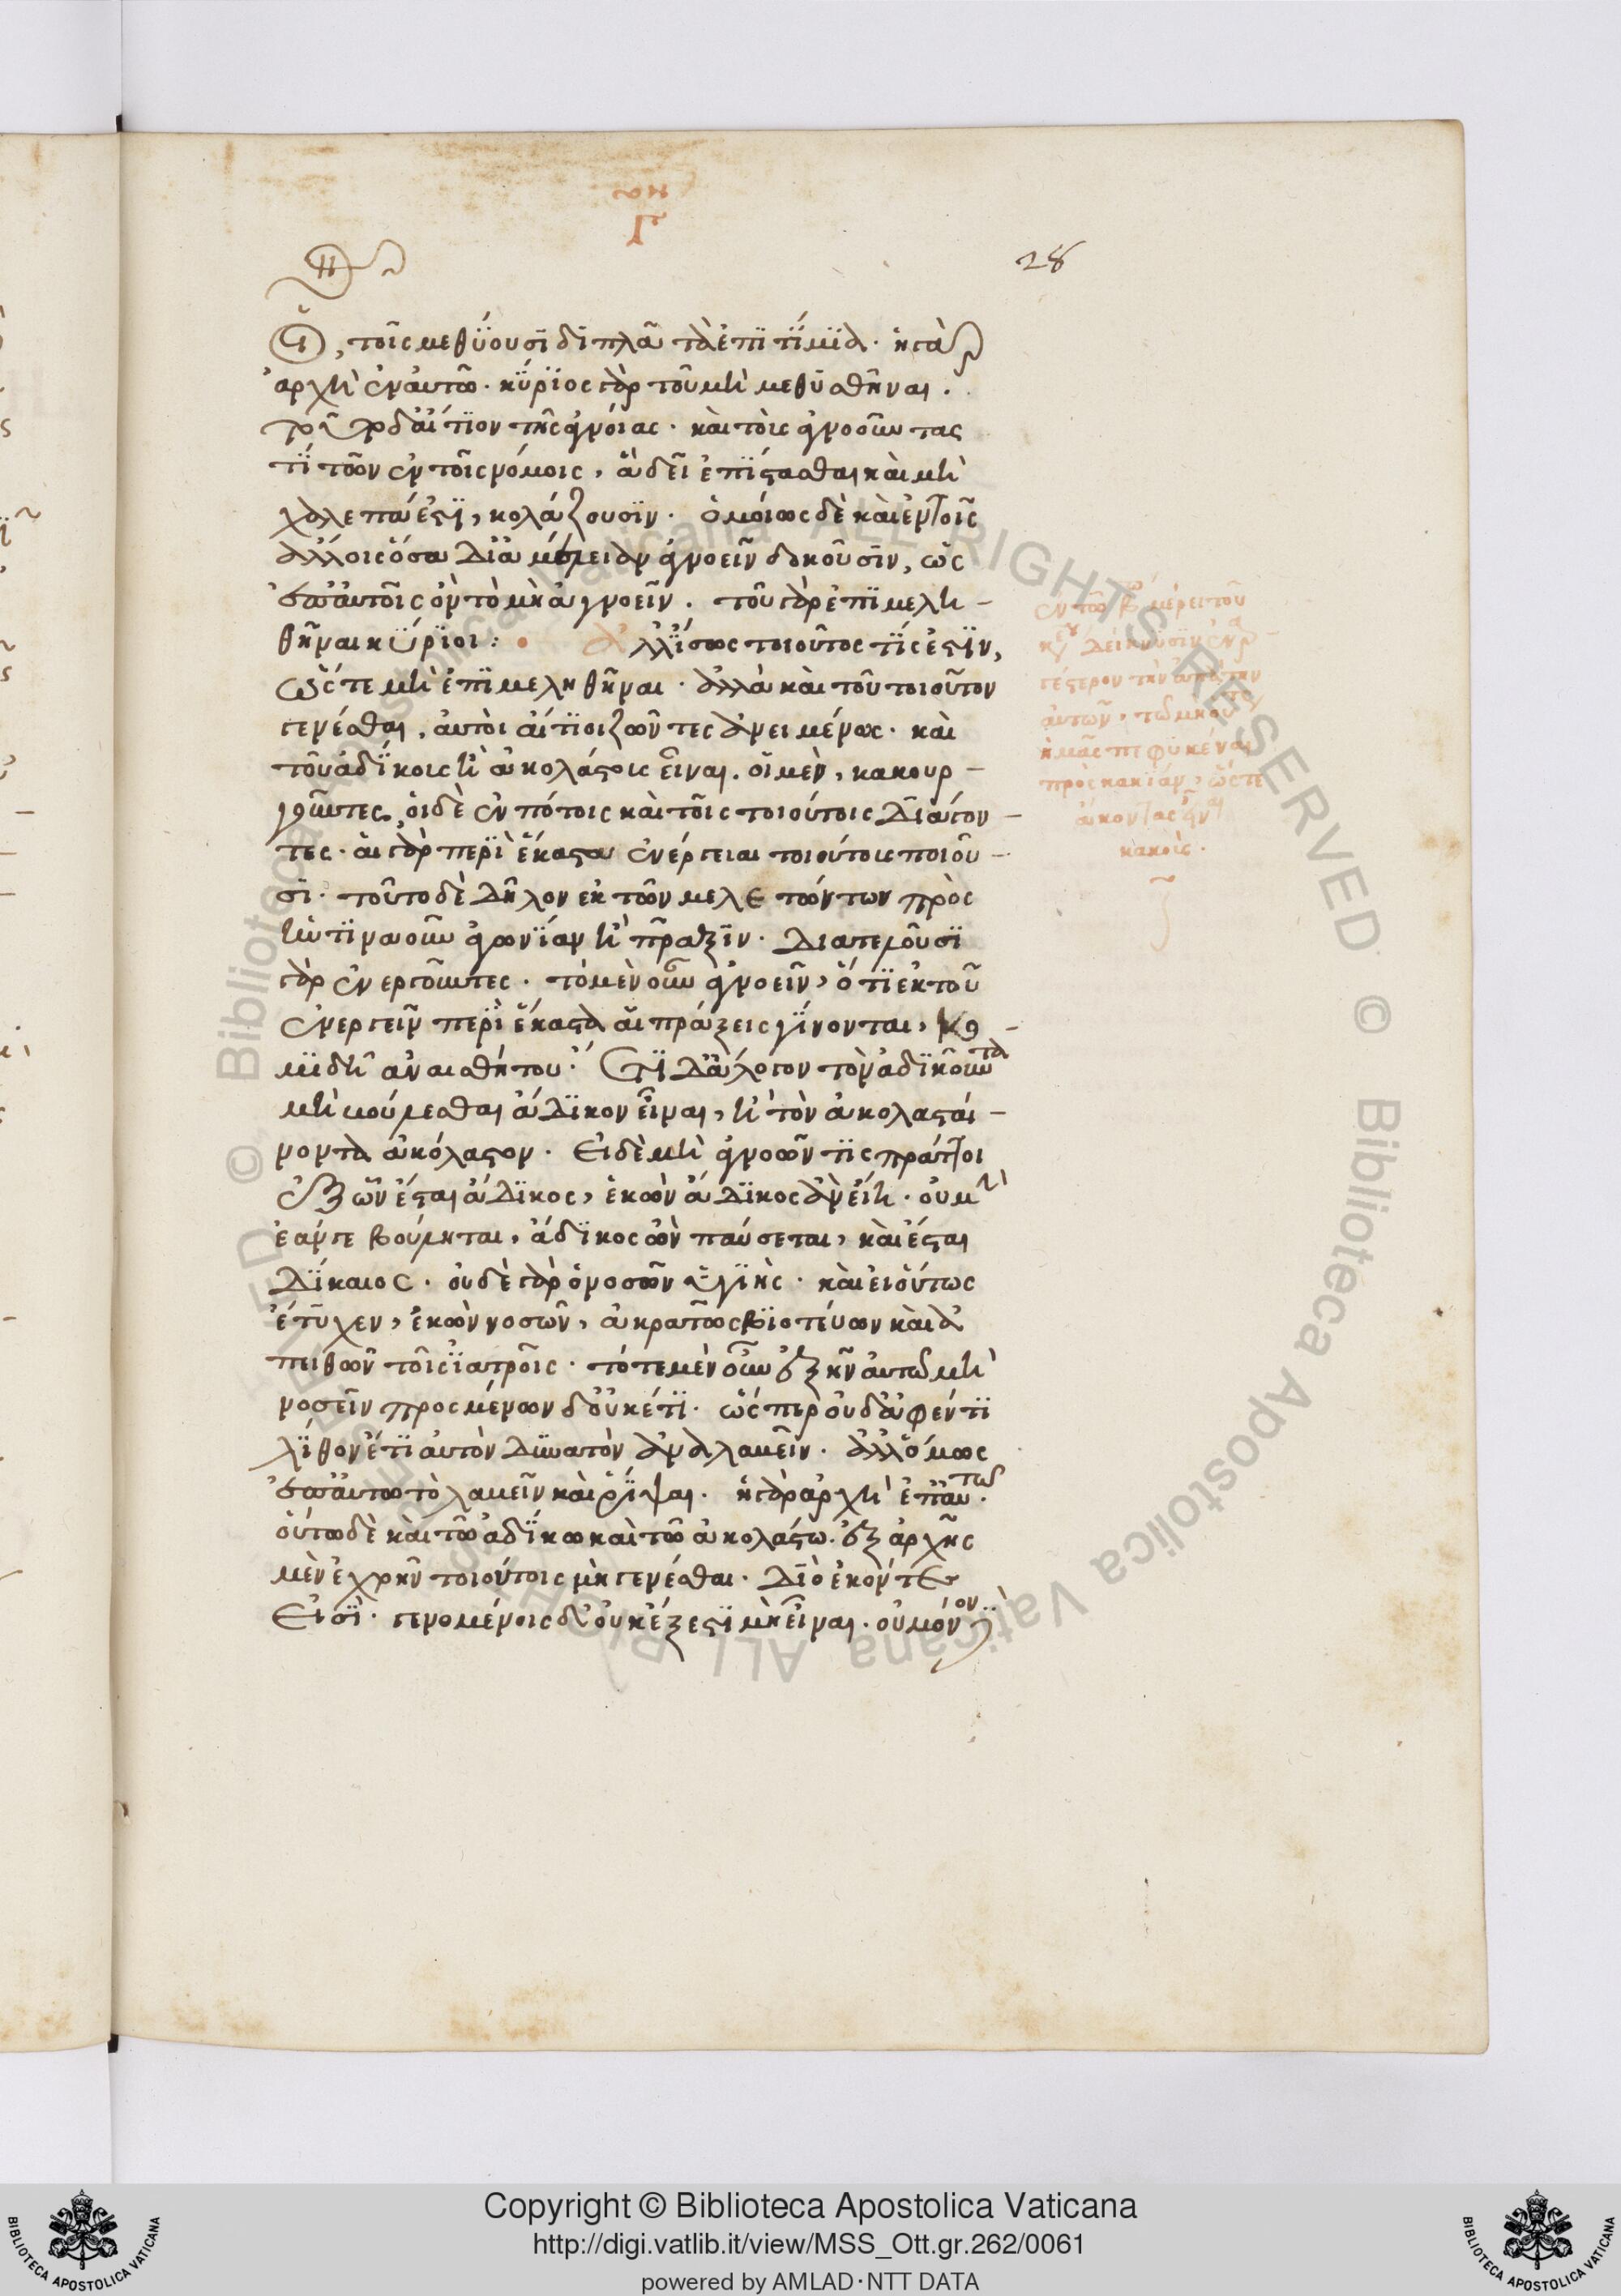 28
οἷ, τοῖς μεθύουσι διπλᾶ τὰ ἐπιτίμια· ἡ γὰρ
ἀρχὴ ἐν αὐτῷ· κύριος γὰρ τοῦ μὴ μεθυσθῆναι.
τοῦτο δ' αἴτιον τῆς ἀγνοίας· καὶ τοὺς ἀγνοοῦντας
τὶ τῶν ἐν τοῖς νόμοις, ἃ δεῖ ἐπίστασθαι καὶ μὴ
χαλεπά ἐστι, κολάζουσιν. ὁμοίως δὲ καὶ ἐν τοῖς
ἄλλοις ὅσα δι' ἀμέλειαν ἀγνοεῖν δοκοῦσιν, ὡς
ἐπ' αὐτοῖς ὂν τὸ μὴ ἀγνοεῖν. τοῦ γὰρ ἐπιμελη-
θῆναι κύριοι: ἀλλ' ἴσως τοιοῦτος τίς ἐστιν,
ὥστε μὴ ἐπιμεληθῆναι· ἀλλὰ καὶ τοῦ τοιοῦτον
γενέσθαι, αὐτοὶ αἴτιοι ζῶντες ἀνειμένως· καὶ
τοῦ ἀδίκοις ἢ ἀκολάστοις εἶναι. οἱ μὲν, κακουρ-
γοῦντες, οἱ δὲ ἐν πότοις καὶ τοῖς τοιούτοις διάγον-
τες· αἱ γὰρ περὶ ἕκαστα ἐνέργειαι τοιούτοις ποιοῦ-
σι· τοῦτο δὲ δῆλον ἐκ τῶν μελετώντων πρὸς
ἡντιναοῦν ἀγωνίαν ἢ πρᾶξιν· διατελοῦσι
γὰρ ἐνεργοῦντες· τὸ μὲν οὖν ἀγνοεῖν, ὅτι ἐκ τοῦ
ἐνεργεῖν περὶ ἕκαστα αἱ πράξεις γίνονται, κο-
μιδῇ ἀναισθήτου· ἔτι δ' ἄλογον τὸν ἀδικοῦντα
μὴ βούλεσθαι ἄδικον εἶναι, ἢ τὸν ἀκολασταί-
νοντα ἀκόλαστον. εἰ δὲ μὴ ἀγνοῶν τις πράττοι
ἐξ ὧν ἔσται ἄδικος, ἑκὼν ἄδικος ἂν εἴη· οὐ μὴ
ἐάν γε βούληται, ἄδικος ὢν παύσεται, καὶ ἔσται
δίκαιος. οὐδὲ γὰρ ὁ νοσῶν ὑγιής· καὶ εἰ οὕτως
ἔτυχεν, ἑκὼν νοσῶν, ἀκρατῶς βιοτεύων καὶ ἀ
πειθῶν τοῖς ἰατροῖς· τότε μὲν οὖν ἐξῆν αὐτῷ μὴ
νοσεῖν προσμένων δ' οὐκέτι· ὥσπερ οὐδ' ἀφέντι
λίθον ἔτι αὐτὸν δυνατὸν ἀναλαβεῖν. ἀλλ' ὅμως
ἐπ' αὐτῷ τὸ λαβεῖν καὶ ῥίψαι. ἡ γὰρ ἀρχὴ ἐπ' αὐτῷ.
οὕτω δὲ καὶ τῷ ἀδίκῳ καὶ τῷ ἀκολάστῳ. ἐξ ἀρχῆς
μὲν ἐχρῆν τοιούτοις μὴ γενέσθαι. διὸ ἑκόντες
εἰσί· γενομένοις δ' οὐκ ἔξεστι μὴ εἶναι. οὐ μόνον
ἐν τῷ β μέρει τοῦ
δείκνυσιν
τὴν ἀπάτην
αὐτῶν,
ἡμᾶς πεφυκέναι
πρὸς κακίαν, ὥστε
ἄκοντας εἶναι
κακοὺς.
Copyright © Biblioteca Apostolica Vaticana
http://digi.vatlib.it/view/MSS_Ott.gr.262/0061
powered by AMLAD·NTT DATA